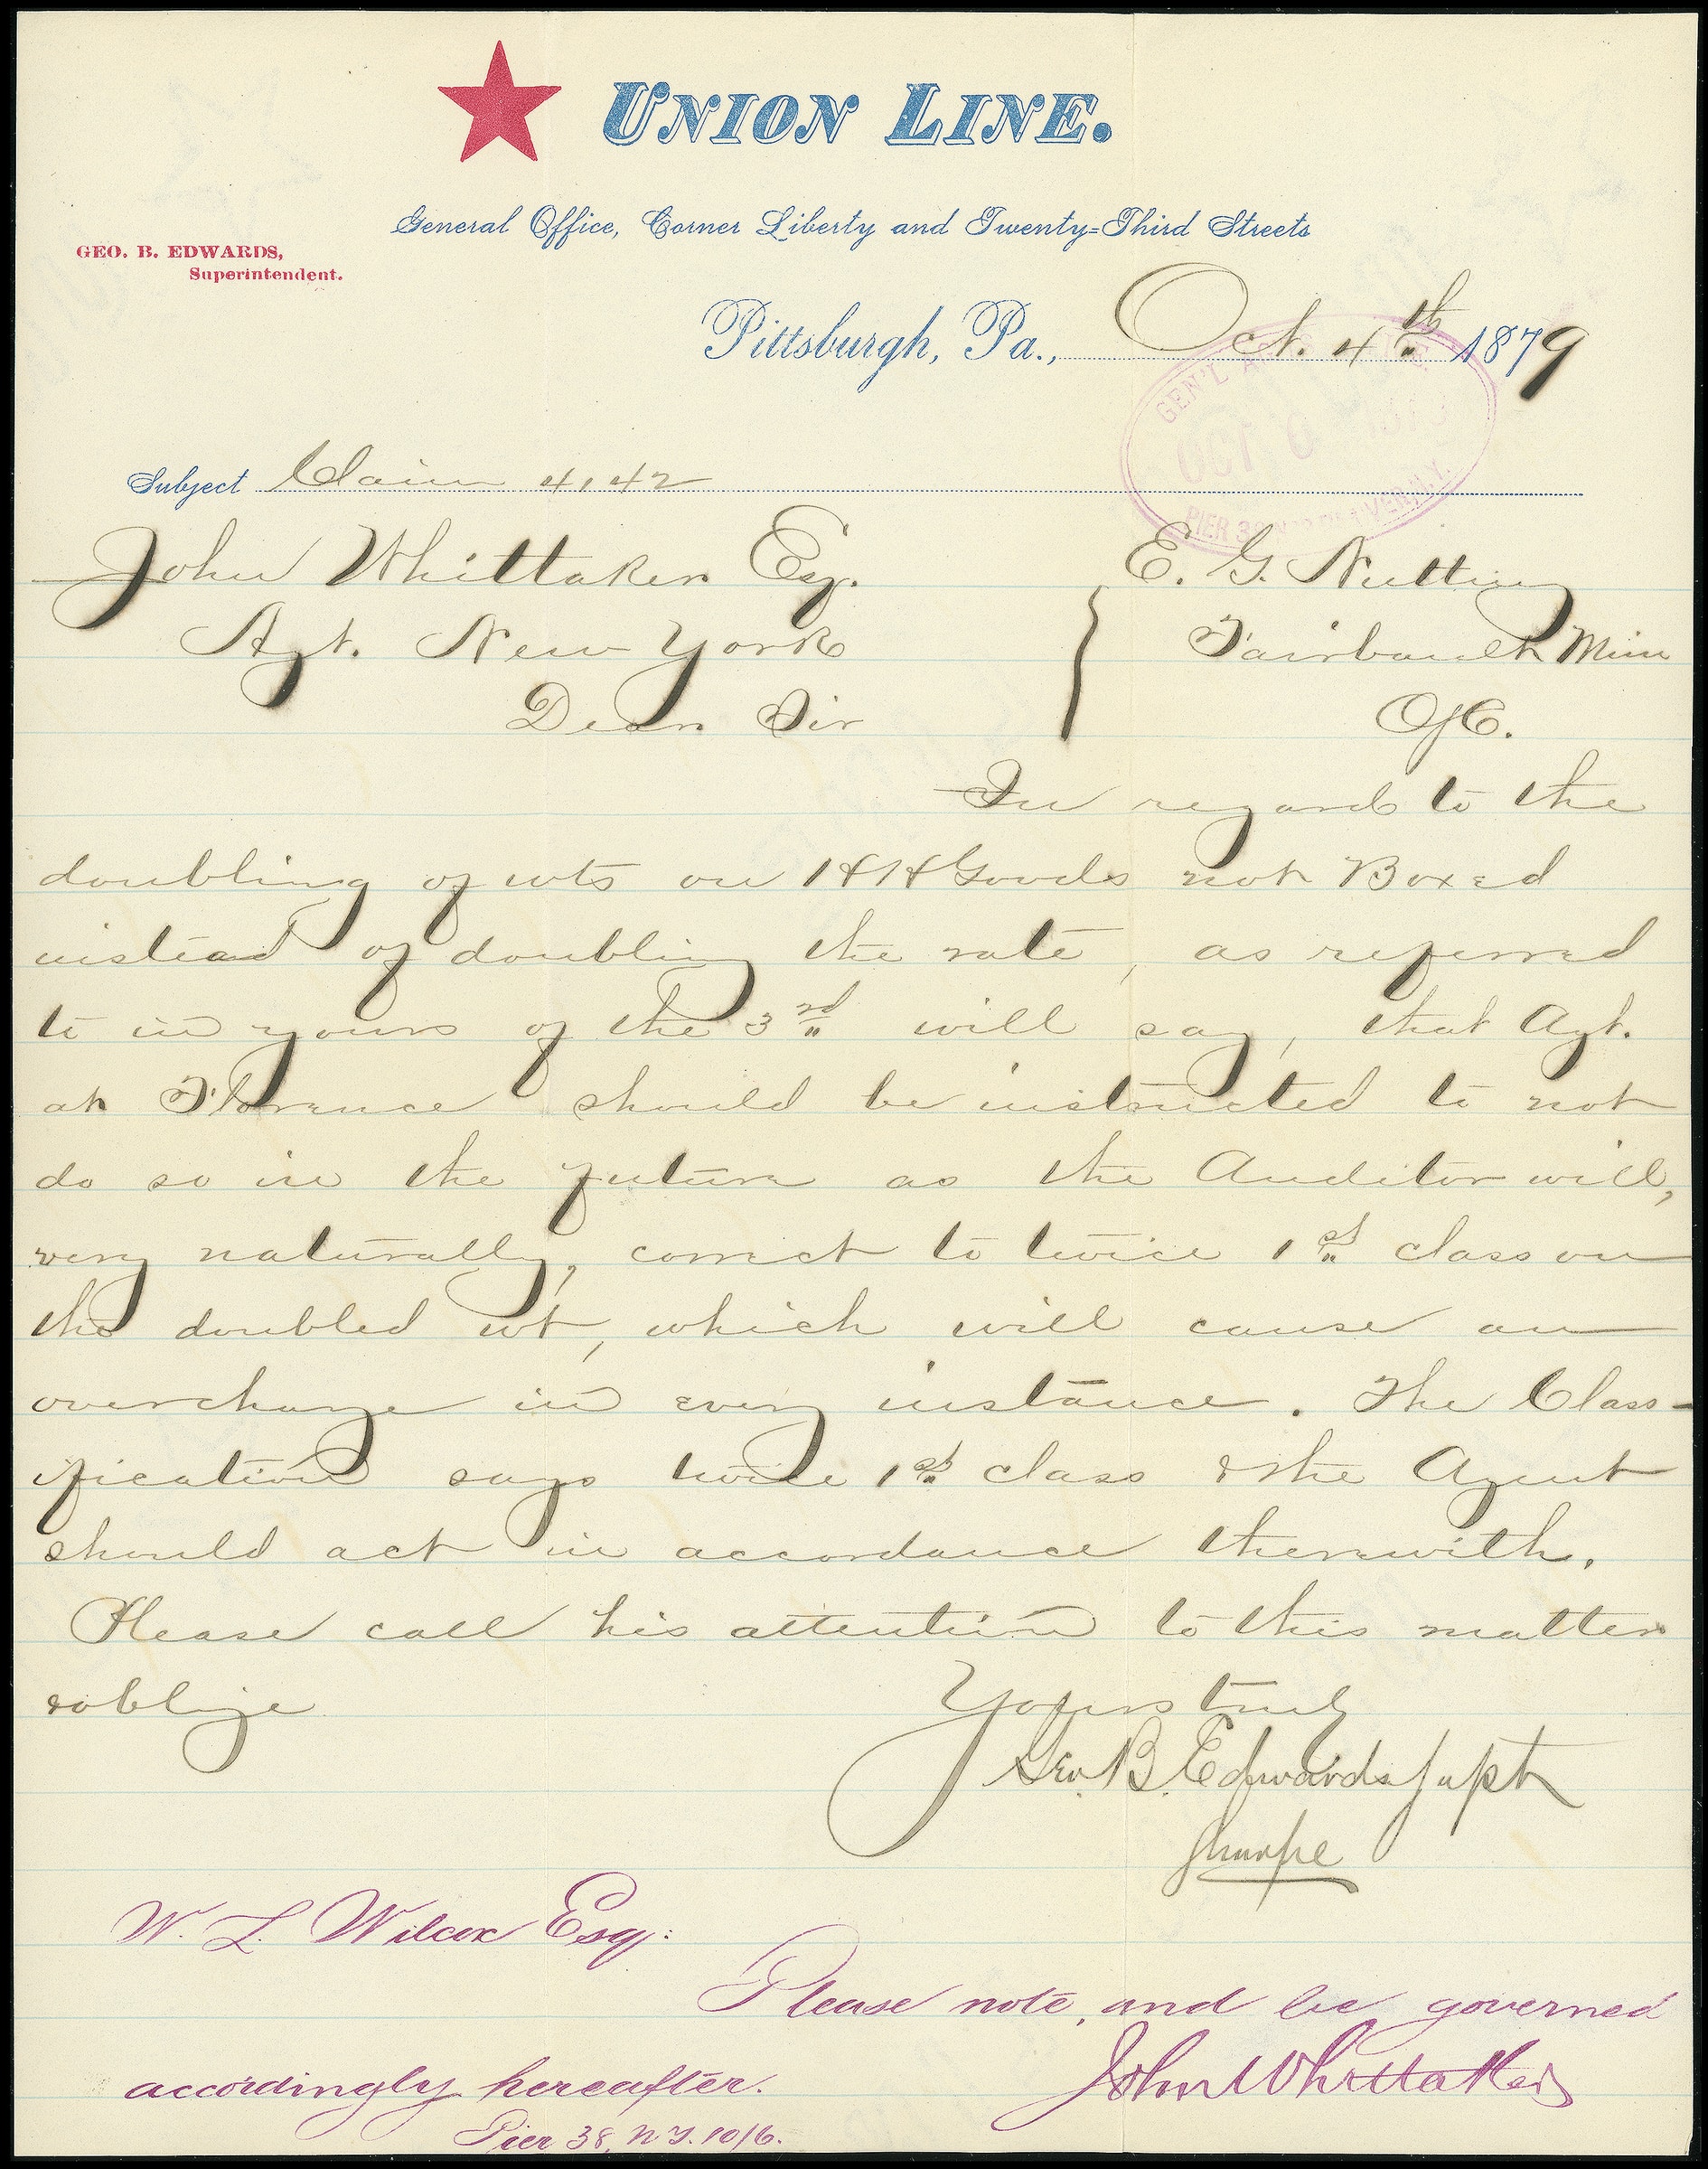 UNION LINE.
General Office, Corner Liberty and Twenty=Third Streets
GEO. B. EDWARDS,
Superintendent.
Pittsburgh, Pa., Oct. 4th 1879
GEN'L
OCT 1879
PIER 38 RIVER, N.Y.
Subject Claim 4142
John Whittaker Esq. E. G. Nutting
Agt. New York Fairbault Minn
Dear Sir O/C.
In regard to the
doubling of wts on HH Goods not Boxed
instead of doubling the rate, as referred
to in yours of the 3rd will say, that Agt.
at Florence should be instructed to not
do so in the future as the Auditor will,
very naturally, correct to twice 1st class on
the doubled wt, which will cause an
overcharge in every instance. The Class-
ification says twice 1st class & the Agent
should act in accordance therewith.
Please call his attention to this matter
& oblige
Yours truly
Geo. B. Edwards Supt
Sharpe
W. L. Wilcox Esq:
Please note, and be governed
accordingly hereafter. John Whittaker
Pier 38, N.Y. 10/6.